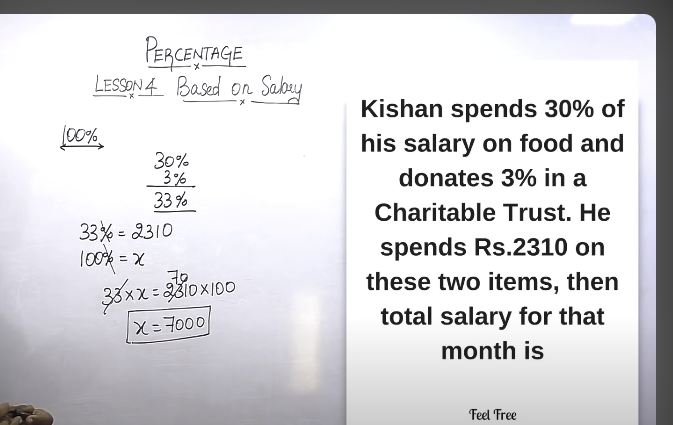 PERCENTAGE
LESSON 4 Based on Salary
100%
30%
3%
33%
33% = 2310
100% = x
70
33 × x = 2310 × 100
x = 7000
Kishan spends 30% of
his salary on food and
donates 3% in a
Charitable Trust. He
spends Rs.2310 on
these two items, then
total salary for that
month is
Feel Free